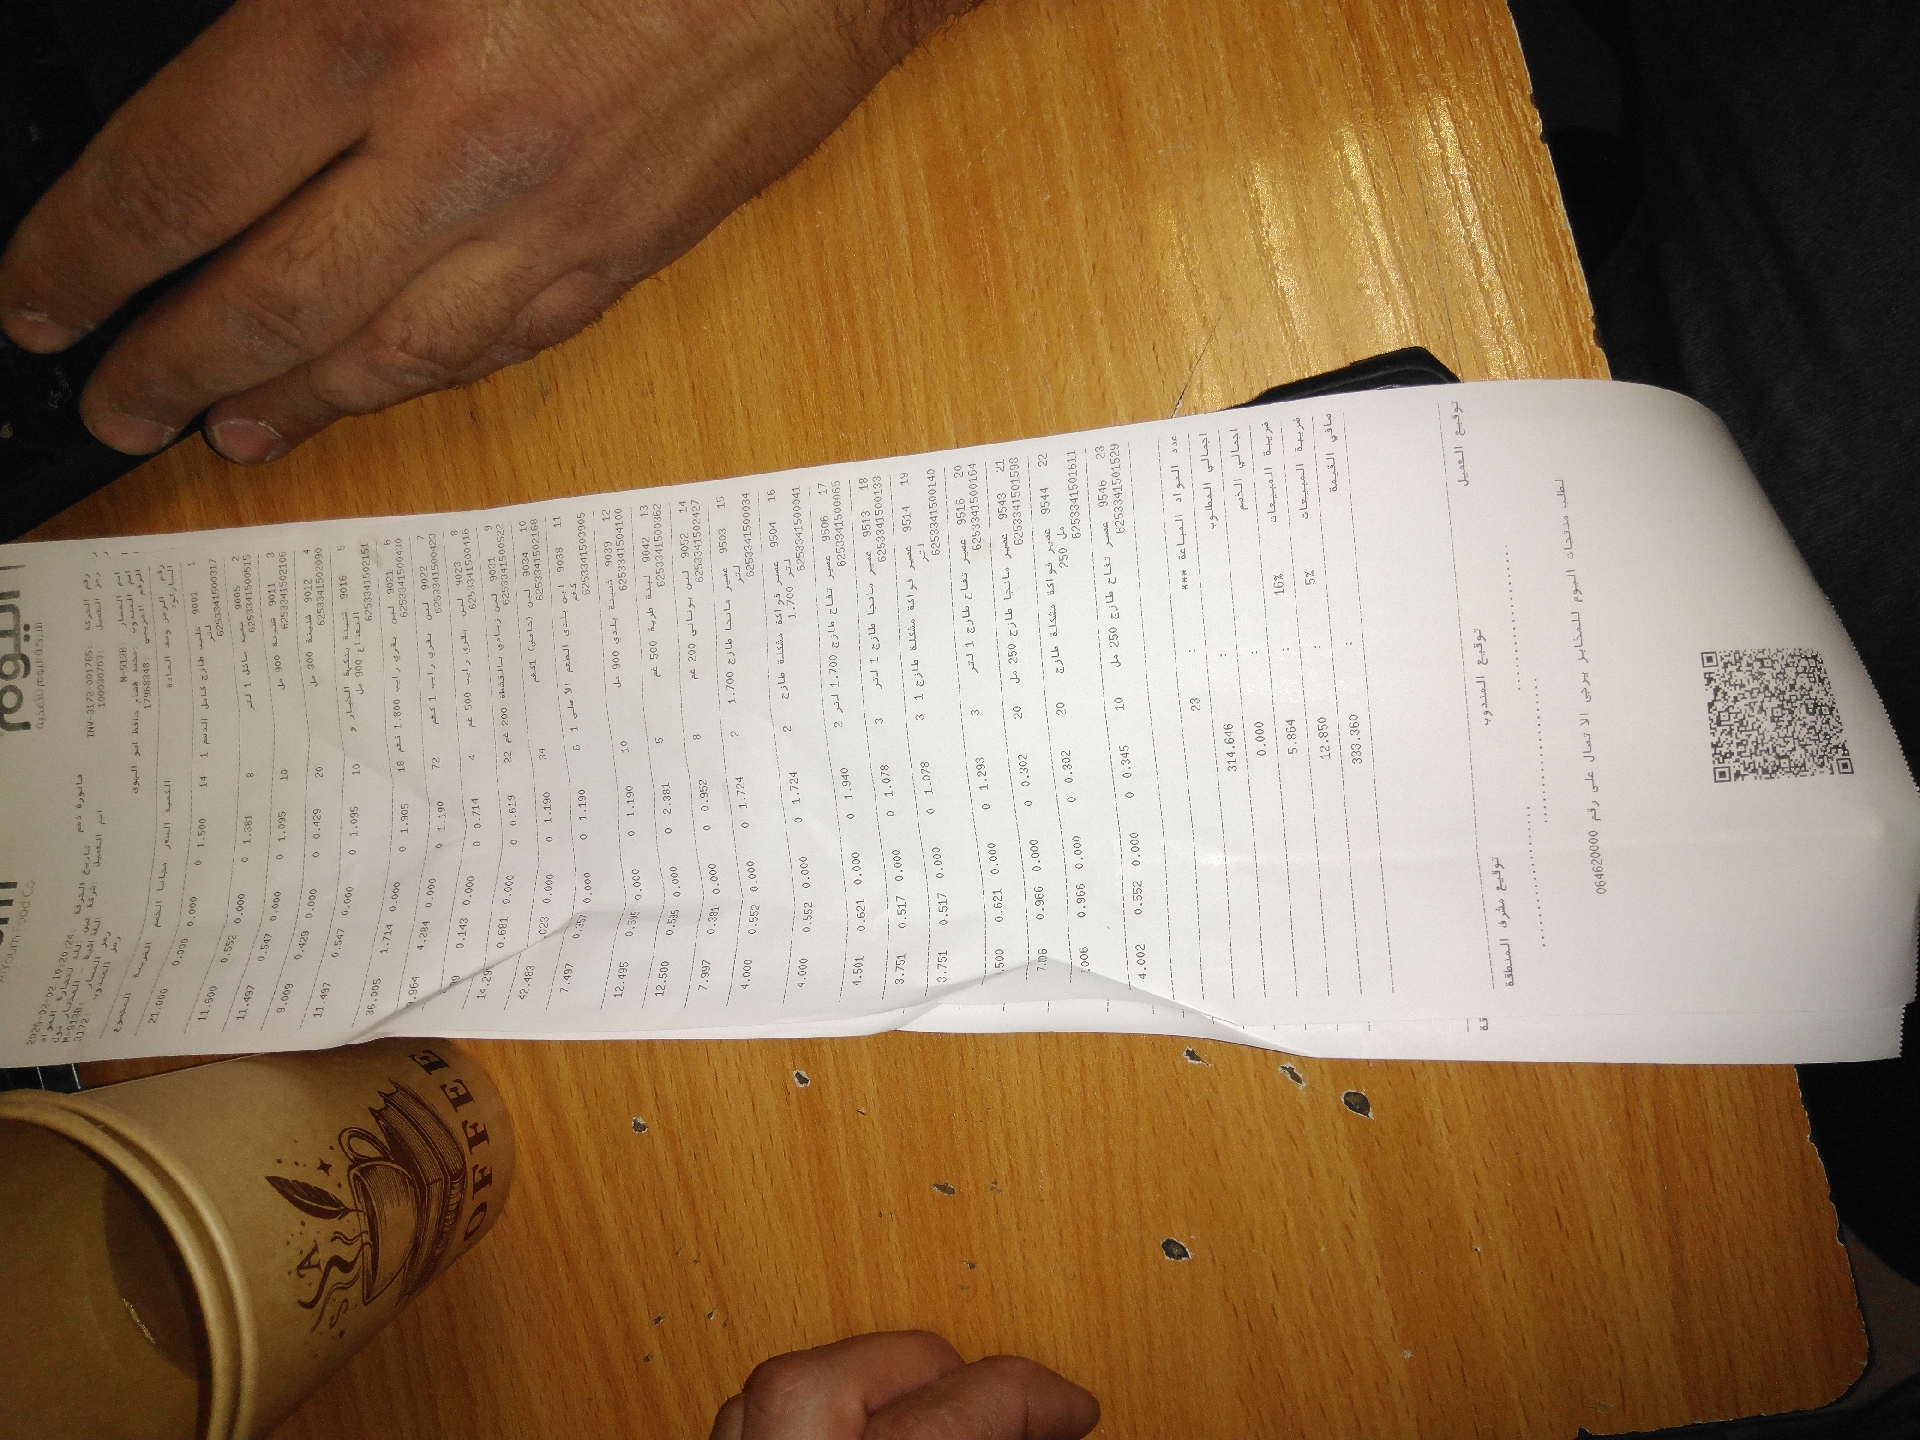 اليوم
شركة اليوم للأغذية
Alyoum Food Co
INV-3172-001765
100030703
2025-02-02 10:20:24
فاتورة ذمم
N-513R
17968348
رقم الرمز وصف المادة
الكمية السعر
الضريبة المجموع
1 9001 حليب طازج كامل الدسم 1 لتر 14 1.500 0 0.000 0.000 21.000
6253341500317
2 9005 سائل 1 لتر 8 1.381 0 0.000 0.552 11.600
6253341500515
3 9011 شنينة 900 مل 10 1.095 0 0.000 0.547 11.497
6253341502106
4 9012 شنينة 300 مل 20 0.429 0 0.000 0.429 9.009
6253341502090
5 9016 شنينة بنكهة الخيار و النعناع 900 مل 10 1.095 0 0.000 0.547 11.497
6253341502151
6 9021 لبن بقري رايب 1.800 كغم 18 1.905 0 0.000 1.714 36.005
6253341500430
7 9022 لبن بقري رايب 1 كغم 72 1.190 0 0.000 4.284 .964
6253341500423
8 9023 لبن بقري رايب 500 غم 4 0.714 0 0.000 0.143
6253341500416
9 9031 لبن زبادي بالقشطة 200 غم 22 0.619 0 0.000 0.681 14.29
6253341500522
10 9034 لبن (خاص) 1كغم 34 1.190 0 0.000 .023 42.483
6253341502168
11 9038 لبن بلدي الطعم الأصلي 1 كغم 6 1.190 0 0.000 0.357 7.497
6253341503905
12 9039 شنينة بلدي 900 مل 10 1.190 0 0.000 0.595 12.495
6253341504100
13 9042 لبنة طرية 500 غم 5 2.381 0 0.000 0.595 12.500
6253341500362
14 9052 لبن يوناني 200 غم 8 0.952 0 0.000 0.381 7.997
6253341502427
15 9503 عصير مانجا طازج 1.700 لتر 2 1.724 0 0.000 0.552 4.000
6253341500034
16 9504 عصير فواكة مشكلة طازج 1.700 لتر 2 1.724 0 0.000 0.552 4.000
6253341500041
17 9506 عصير تفاح طازج 1.700 لتر 2 1.940 0 0.000 0.621 4.501
6253341500065
18 9513 عصير مانجا طازج 1 لتر 3 1.078 0 0.000 0.517 3.751
6253341500133
19 9514 عصير فواكة مشكلة طازج 1 لتر 3 1.078 0 0.000 0.517 3.751
6253341500140
20 9516 عصير تفاح طازج 1 لتر 3 1.293 0 0.000 0.621 .500
6253341500164
21 9543 عصير مانجا طازج 250 مل 20 0.302 0 0.000 0.966 7.06
6253341501598
22 9544 عصير فواكة مشكلة طازج 250 مل 20 0.302 0 0.000 0.966 .006
6253341501611
23 9546 عصير تفاح طازج 250 مل 10 0.345 0 0.000 0.552 4.002
6253341501529
عدد المواد المباعة *** : 23
اجمالي المطلوب : 314.646
اجمالي الخصم : 0.000
ضريبة المبيعات 16% : 5.864
ضريبة المبيعات 5% : 12.850
صافي القيمة : 333.360
توقيع العميل
توقيع المندوب
توقيع مشرف المنطقة
لطلب منتجات اليوم للمخابز يرجى الاتصال على رقم 064620000
COFFEE